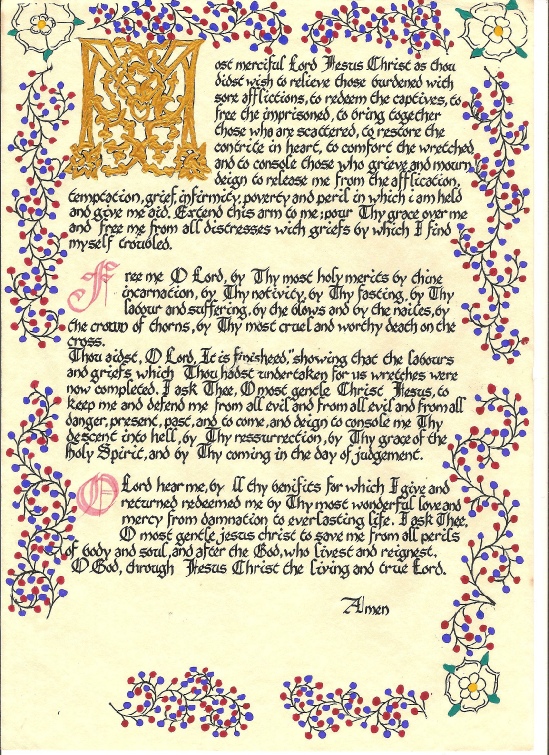 Most merciful Lord Jesus Christ as thou
didst wish to relieve those burdened with
sore afflictions, to redeem the captives, to
free the imprisoned, to bring together
those who are scattered, to restore the
contrite in heart, to comfort the wretched,
and to console those who grieve and mourn,
deign to release me from the afflication,
temptation, grief, infirmity, poverty and peril in which i am held
and give me aid. Extend this arm to me; pour Thy grace over me
and free me from all distresses with griefs by which I find
myself troubled.
Free me O Lord, by Thy most holy merits by thine
incarnation, by Thy nativity, by Thy fasting, by Thy
labour and suffering, by the blows and by the nailes, by
the crown of thorns, by Thy most cruel and worthy death on the
cross.
Thou aidst, O Lord, It is finisheed," showing that the labours
and griefs which Thou hadst undertaken for us wretches were
now completed. I ask Thee, O most gentle Christ Jesus, to
keep me and defend me from all evil and from all evil and from all
danger, present, past, and to come, and deign to console me Thy
descent into hell, by Thy ressurrection, by Thy grace of the
holy Spirit, and by Thy coming in the day of judgement.
O Lord hear me, by ll thy benifits for which I give and
returned redeemed me by Thy most wonderful love and
mercy from damnation to everlasting life. I ask Thee,
O most gentle jesus christ to save me from all perils
of body and soul, and after the God, who livest and reignest,
O God, through Jesus Christ the living and true Lord.
Amen